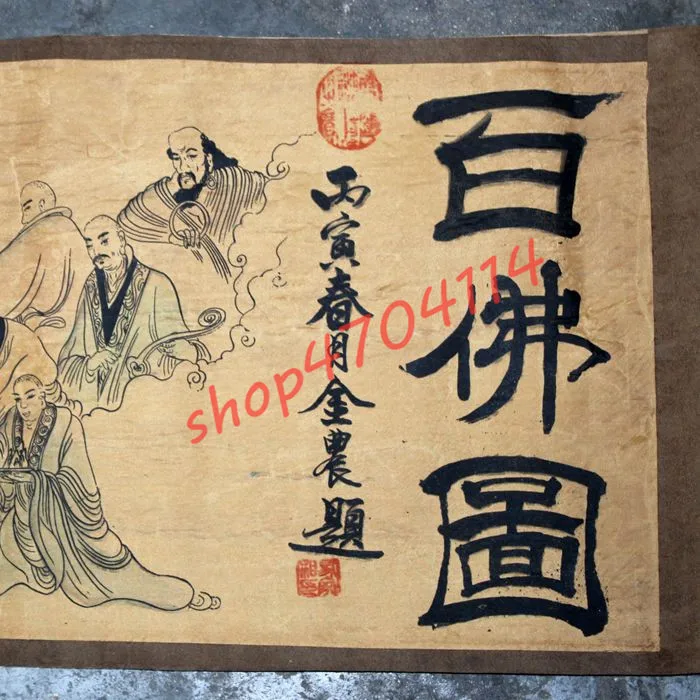 百佛圖
丙寅春月金農題
shop4704114